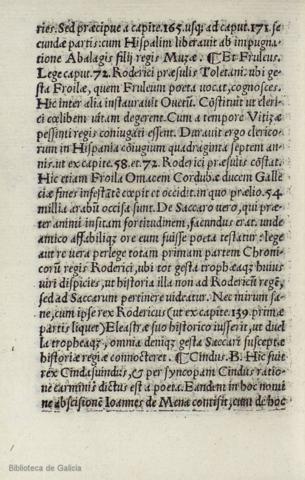 ries. Sed præcipue a capite. 165. usq; ad caput. 171. se
cundæ partis: cum Hispalim liberavit ab impugna
tione Abalagis filij regis Muzæ. ¶ Et Fruleus.
Lege caput. 72. Roderici præsulis Toletani: ubi ge
sta Froilæ, quem Fruleum poeta vocat, cognosces.
Hic inter alia instauravit Ovetũ. Cõstituit ut cleri
ci cœlibem vitam degerent. Cum a tempore Vitizæ
pessimi regis coniugati essent. Duravit ergo clerico
rum in Hispania cõiugium quadraginta septem an
nis. ut ex capite. 58. et. 72. Roderici præsulis cõstat.
Hic etiam Froila Omacem Cordubæ ducem Galle
ciæ fines infestãtẽ cœpit et occidit. in quo prælio. 54.
millia arabũ occisa sunt. De Saccaro vero, qui præ
ter animi insitam fortitudinem, facundus erat. unde
amico affabiliq; ore eum fuisse poeta testatur: lege
aut re vera perlege totam primam partem Chroni-
corũ regis Roderici, ubi tot gesta trophæaq; huius
viri dispicies, ut historia illa non ad Rodericũ regẽ,
sed ad Saccarum pertinere videatur. Nec mirum sa-
ne, cum ipse rex Rodericus (ut ex capite. 139. primæ
partis liquet) Eleastræ suo historico iusserit, ut duel
la trophæaq;, omnia deniq; gesta Saccari susceptæ
historiæ regiæ connocteret. ¶ Cindus. B. Hic fuit
rex Cindasuindus, & per syncopam Cindus ratio-
ne carminis dictus est a poeta. Eandem in hoc nomi
ne abscisionẽ Ioannes de Mena contisit, cum de hoc
Biblioteca de Galicia